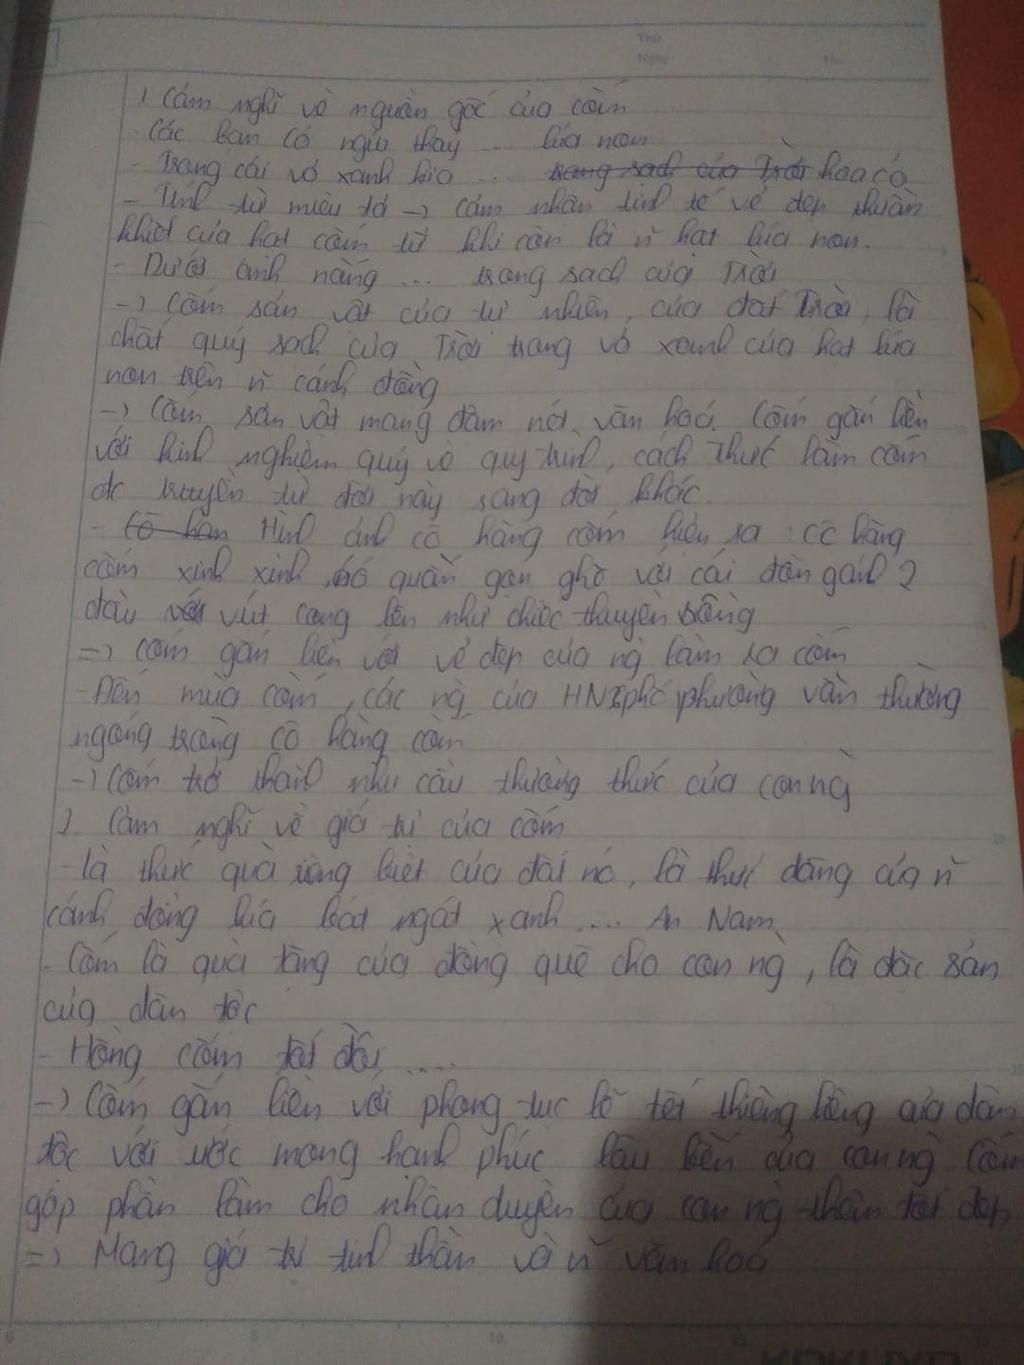 Thứ
Ngày No.
1. Cảm nghĩ về nguồn gốc của cốm
- Các bạn có ngửi thấy ... lúa non
- Trong cái vỏ xanh kia ... trong sạch của Trời hoa cỏ
- Tính từ miêu tả -> cảm nhận tinh tế vẻ đẹp thuần
khiết của hạt cốm từ khi còn là n~ hạt lúa non.
- Dưới ánh nắng ... trong sạch của Trời
-> Cốm sản vật của tự nhiên, của đất Trời, là
chất quý sạch của Trời trong vỏ xanh của hạt lúa
non trên n~ cánh đồng
-> Cốm sản vật mang đậm nét văn hoá. Cốm gắn liền
với kinh nghiệm quý về quy trình, cách thức làm cốm
đc truyền từ đời này sang đời khác.
- Cô hàn Hình ảnh cô hàng cốm hiện ra : cô hàng
cốm xinh xinh, áo quần gọn ghẽ với cái đòn gánh 2
đầu vút cong lên như chiếc thuyền rồng
=> Cốm gắn liền với vẻ đẹp của ng làm ra cốm
- Đến mùa cốm, các ng của HN 36 phố phường vẫn thường
ngóng trông cô hàng cốm
-> Cốm trở thành nhu cầu thưởng thức của con ng
2. Cảm nghĩ về giá trị của cốm
- Là thức quà riêng biệt của đất nc, là thức dâng của n~
cánh đồng lúa bát ngát xanh .... An Nam
- Cốm là quà tặng của đồng quê cho con ng, là đặc sản
của dân tộc
- Hồng cốm tốt đôi ....
-> Cốm gắn liền với phong tục lễ tết thiêng liêng của dân
tộc với ước mong hạnh phúc lâu bền của con ng. Cốm
góp phần làm cho nhân duyên của con ng thêm tốt đẹp
=> Mang giá trị tinh thần và n~ văn hoá
0 5 10 15
KOKUYO